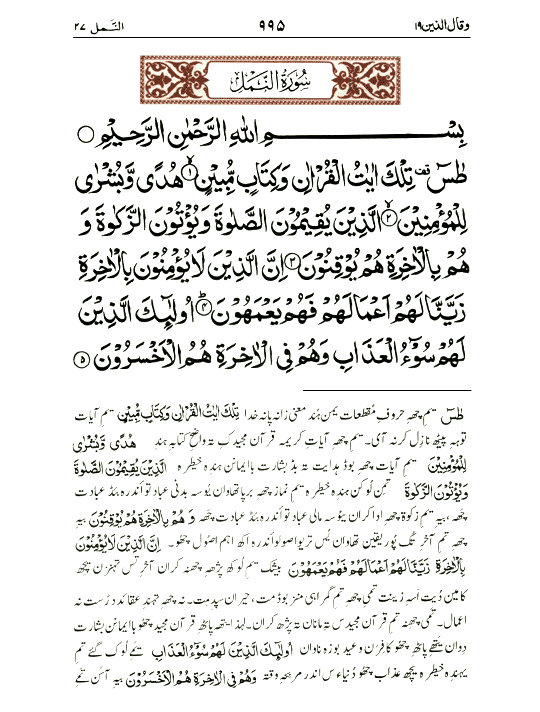 وقال الذين ۱۹ ۹۹۵ النَّمل ۲۷
سُورَةُ النَّمْلِ
بِسْمِ اللهِ الرَّحْمٰنِ الرَّحِيْمِ ○
طٰسٓ ۟ تِلْكَ اٰيٰتُ الْقُرْاٰنِ وَكِتَابٍ مُّبِيْنٍ ۙ۱ هُدًى وَّبُشْرٰى
لِلْمُؤْمِنِيْنَ ۙ۲ الَّذِيْنَ يُقِيْمُوْنَ الصَّلٰوةَ وَيُؤْتُوْنَ الزَّكٰوةَ وَ
هُمْ بِالْاٰخِرَةِ هُمْ يُوْقِنُوْنَ ۳ اِنَّ الَّذِيْنَ لَا يُؤْمِنُوْنَ بِالْاٰخِرَةِ
زَيَّنَّا لَهُمْ اَعْمَالَهُمْ فَهُمْ يَعْمَهُوْنَ ؕ۴ اُولٰٓئِكَ الَّذِيْنَ
لَهُمْ سُوْٓءُ الْعَذَابِ وَهُمْ فِى الْاٰخِرَةِ هُمُ الْاَخْسَرُوْنَ ۵
طٰسٓ یم چھہِ حروفِ مُقطعات یمن ہُند معنی زانہِ پانہ خدا تِلْكَ اٰيٰتُ الْقُرْاٰنِ وَكِتَابٍ مُّبِيْنٍ یم آیات
توہہِ پیٹھ نازل کرنہ آی۔ یم چھہِ آیاتِ کریمہ قرآن مجیدکہ تہِ واضح کتابہ ہند هُدًى وَّبُشْرٰى
لِلْمُؤْمِنِيْنَ یم آیات چھہِ بوڈ ہدایت تہ بڈ بشارت باایمانن ہندِ خیطرہ الَّذِيْنَ يُقِيْمُوْنَ الصَّلٰوةَ
وَيُؤْتُوْنَ الزَّكٰوةَ تمن لوکن ہندِ خیطرہ یم نماز چھہِ برپا تھاوان یوسہ بدنی عبادتو اندرہ بَڈ عبادت
چھہ، بیہِ یم زکوٰۃ چھہِ ادا کران یوسہ مالی عبادتو اندرہ بَڈ عبادت چھہ وَهُمْ بِالْاٰخِرَةِ هُمْ يُوْقِنُوْنَ بیہِ
چھہِ تم آخرتُک پور یقین تھاوان یُس تریو اصولو اندرہ اکھ اہم اصول چھُ۔ اِنَّ الَّذِيْنَ لَا يُؤْمِنُوْنَ
بِالْاٰخِرَةِ زَيَّنَّا لَهُمْ اَعْمَالَهُمْ فَهُمْ يَعْمَهُوْنَ بیشک یم لوکھ پژھہِ چھنہ کران آخرتس تہنزن پچھ
کامین دیت اسہِ زینت تمی چھہِ تم گمراہی منز بوڈمت، حیران سپدمت۔ نہ چھہِ تہند عقائد درست نہ
اعمال۔ تمی چھنہ تم قرآن مجیدس تہِ مانان تہ پژھ کران۔ لہذا یتھہ پاٹھِ قرآن مجید چھُ باایمانن بشارت
دِوان تتھے پاٹھِ چھُ کافرن وعید بوزہ ناوان اُولٰٓئِكَ الَّذِيْنَ لَهُمْ سُوْٓءُ الْعَذَابِ یمے لوک گے تم
یہندِ خیطرہ پچھ عذاب چھُ دُنیاءس اندر مرنہِ وقتہ وَهُمْ فِى الْاٰخِرَةِ هُمُ الْاَخْسَرُوْنَ بیہِ آسن تمے